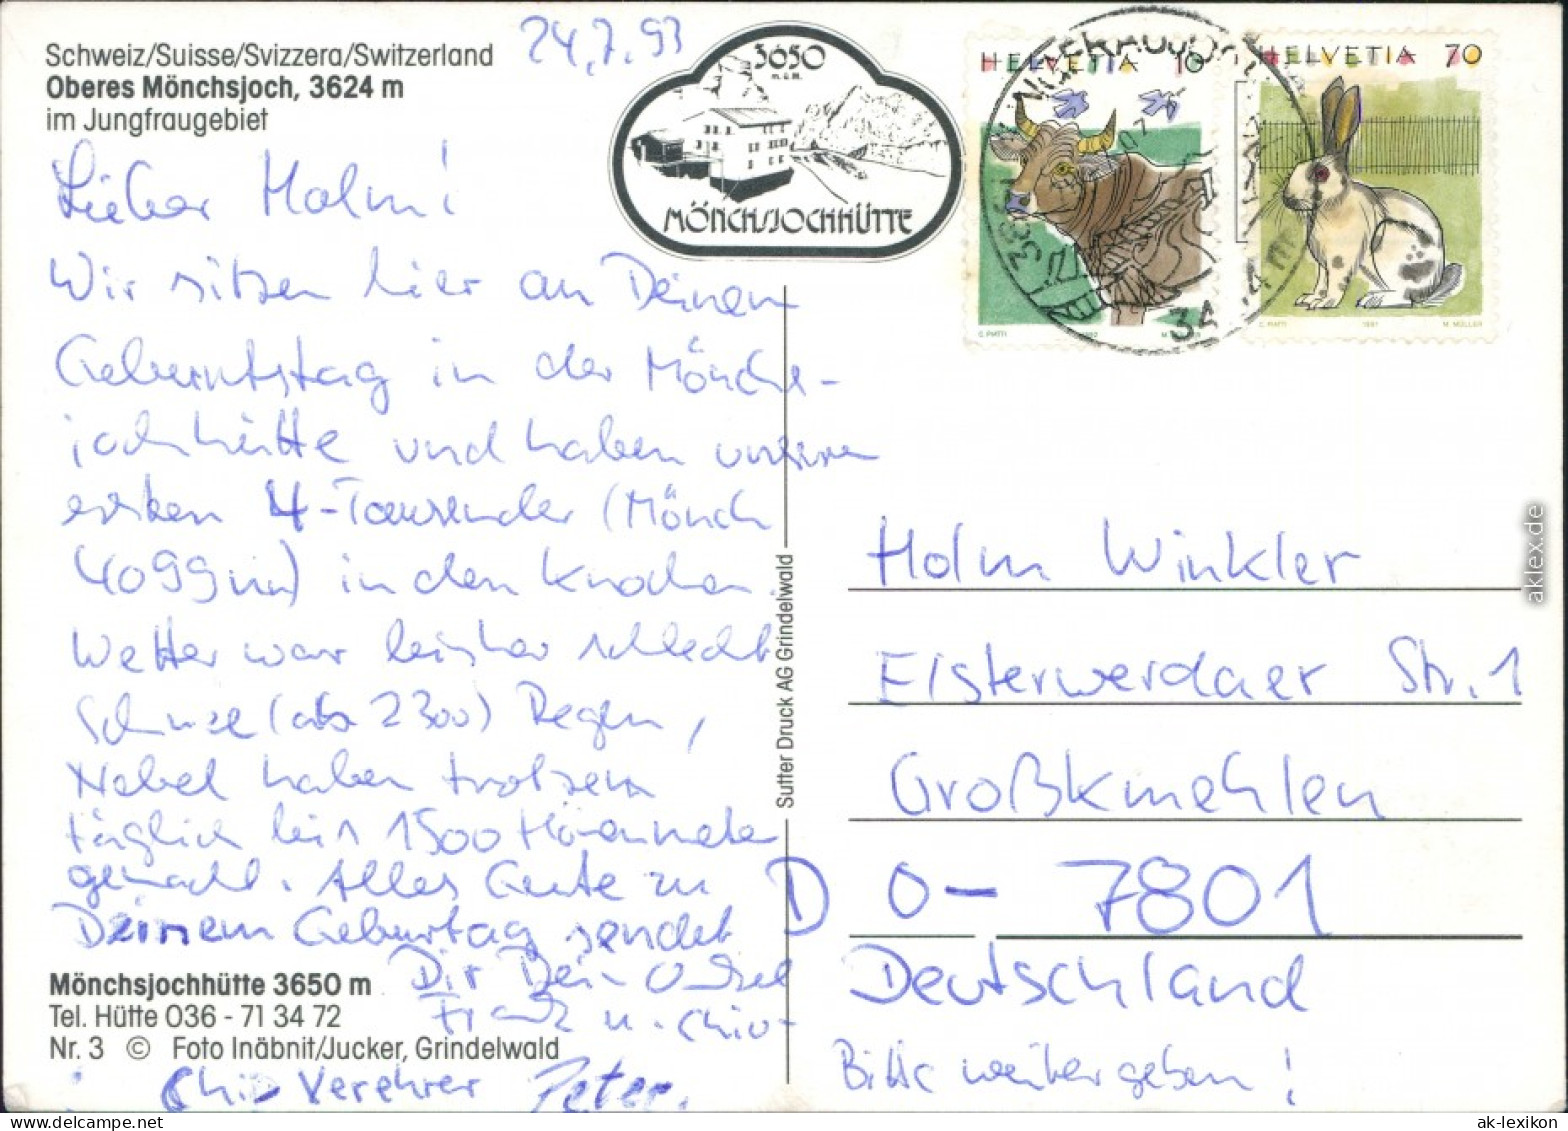 Schweiz/Suisse/Svizzera/Switzerland
Oberes Mönchsjoch, 3624 m
im Jungfraugebiet
24.7.93
3650
m.ü.M.
MÖNCHSJOCHHÜTTE
HELVETIA 10
HELVETIA 70
C. PIATTI 1992
C. PIATTI 1991 M. MÜLLER
Lieber Holm!
Wir sitzen hier an Deinem
Geburtstag in der Mönchs-
jochhütte und haben unseren
ersten 4-Tausender (Mönch
4099m) in den Knochen.
Wetter war bisher schlecht
Schnee (ab 2300) Regen,
Nebel haben trotzdem
täglich bis 1500 Höhenmeter
gemacht. Alles Gute zu
Deinem Geburtstag sendet
Dir Dein Onkel
Frank u. Chiv-
Chiv Verehrer Peter.
Mönchsjochhütte 3650 m
Tel. Hütte 036 - 71 34 72
Nr. 3 © Foto Inäbnit/Jucker, Grindelwald
Sutter Druck AG Grindelwald
Holm Winkler
Elsterwerdaer Str. 1
Großkmehlen
D O- 7801
Deutschland
Bitte weitergeben!
aklex.de
ak-lexikon